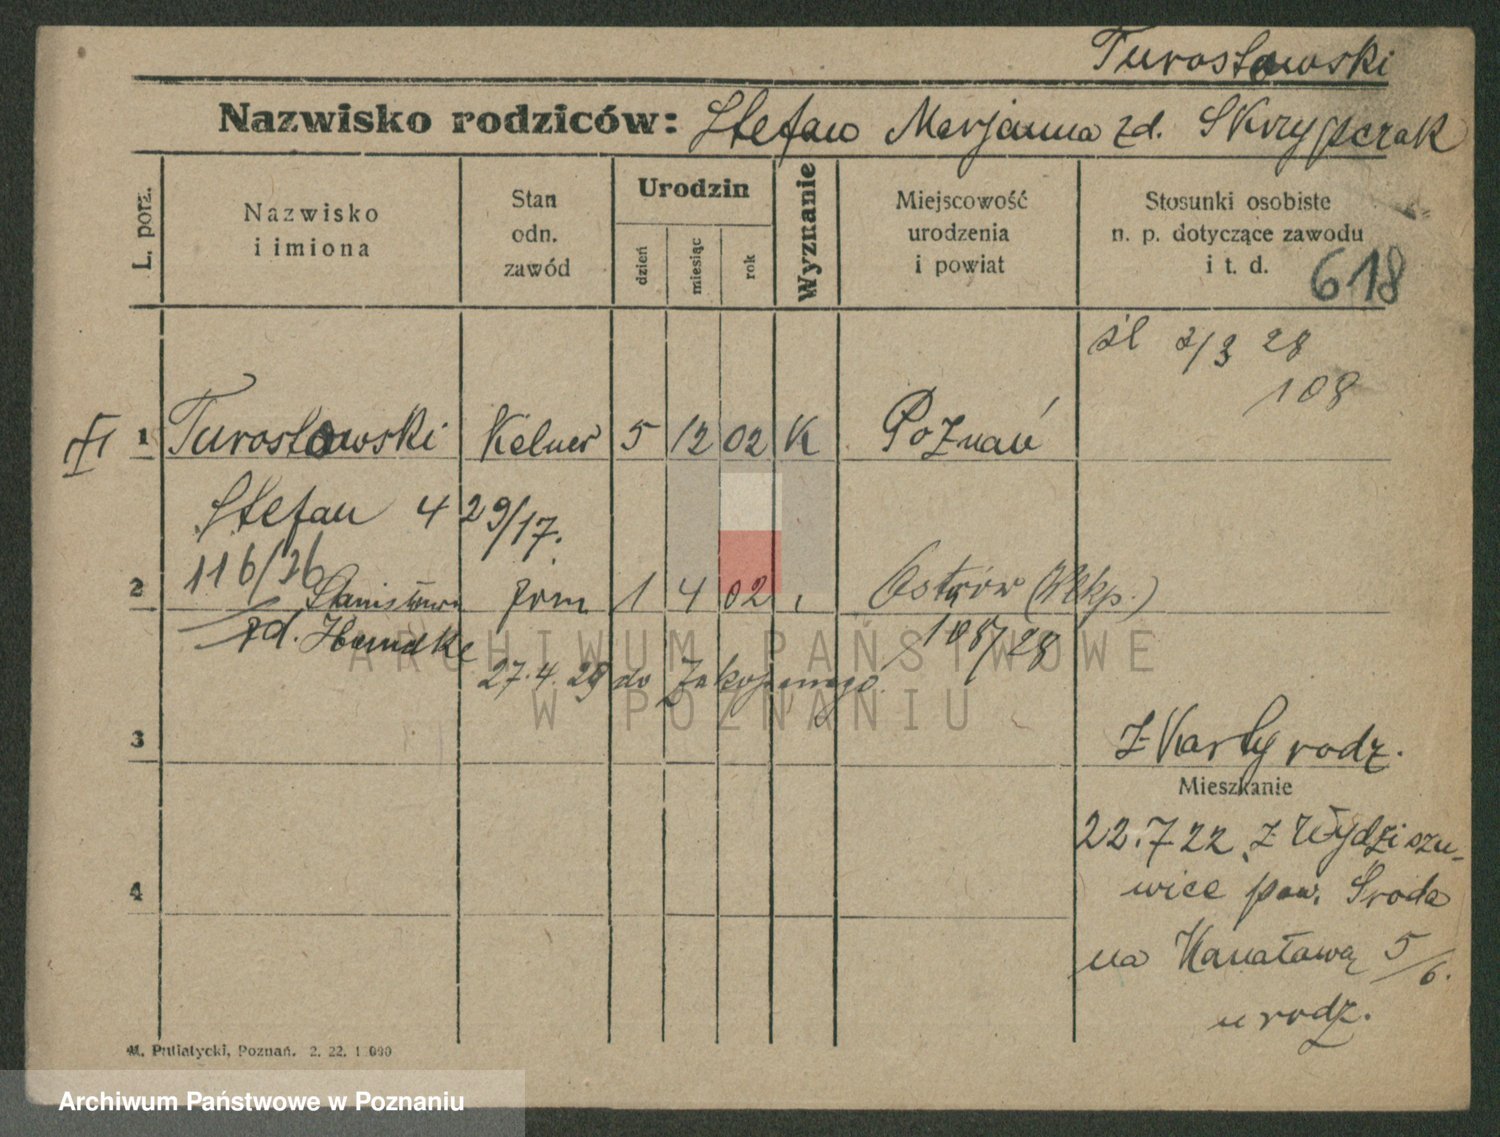 Turosłowski
Nazwisko rodziców: Stefan Marjanna zd. Skrzypczak
L. porz.
Nazwisko
i imiona
Stan
odn.
zawód
Urodzin
dzień
miesiąc
rok
Wyznanie
Miejscowość
urodzenia
i powiat
Stosunki osobiste
n. p. dotyczące zawodu
i t. d.
618
śl 2/3 28
108
1 Turosłowski Kelner 5 12 02 K Poznań
Stefan 4 29/17.
116/26
2 Stanisława 1 4 02 Ostrów (Wlkp.)
zd.
108/28
27.4.28 do Zakopanego
ARCHIWUM PAŃSTWOWE
W POZNANIU
3
Z Karty rodz.
Mieszkanie
22.7 22 z
4
wice pow. Środa
na Kanałową 5/6.
u rodz.
M. Putiatycki, Poznań. 2. 22.
Archiwum Państwowe w Poznaniu